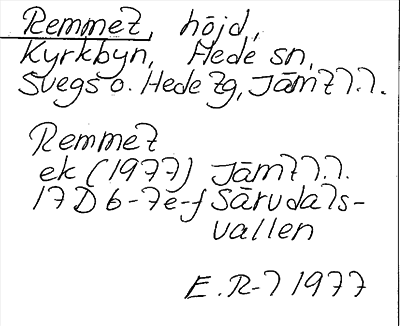 Remmet, höjd,
Kyrkbyn, Hede sn,
Svegs o. Hede tg, Jämtl.l.
Remmet
ek (1977) Jämtl.l.
17D 6-7e-f Särvdals-
vallen
E.R-l 1977